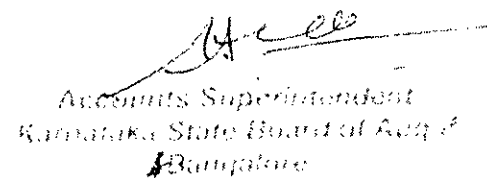 Accounts Superintendent
Karnataka State Board of
Bangalore